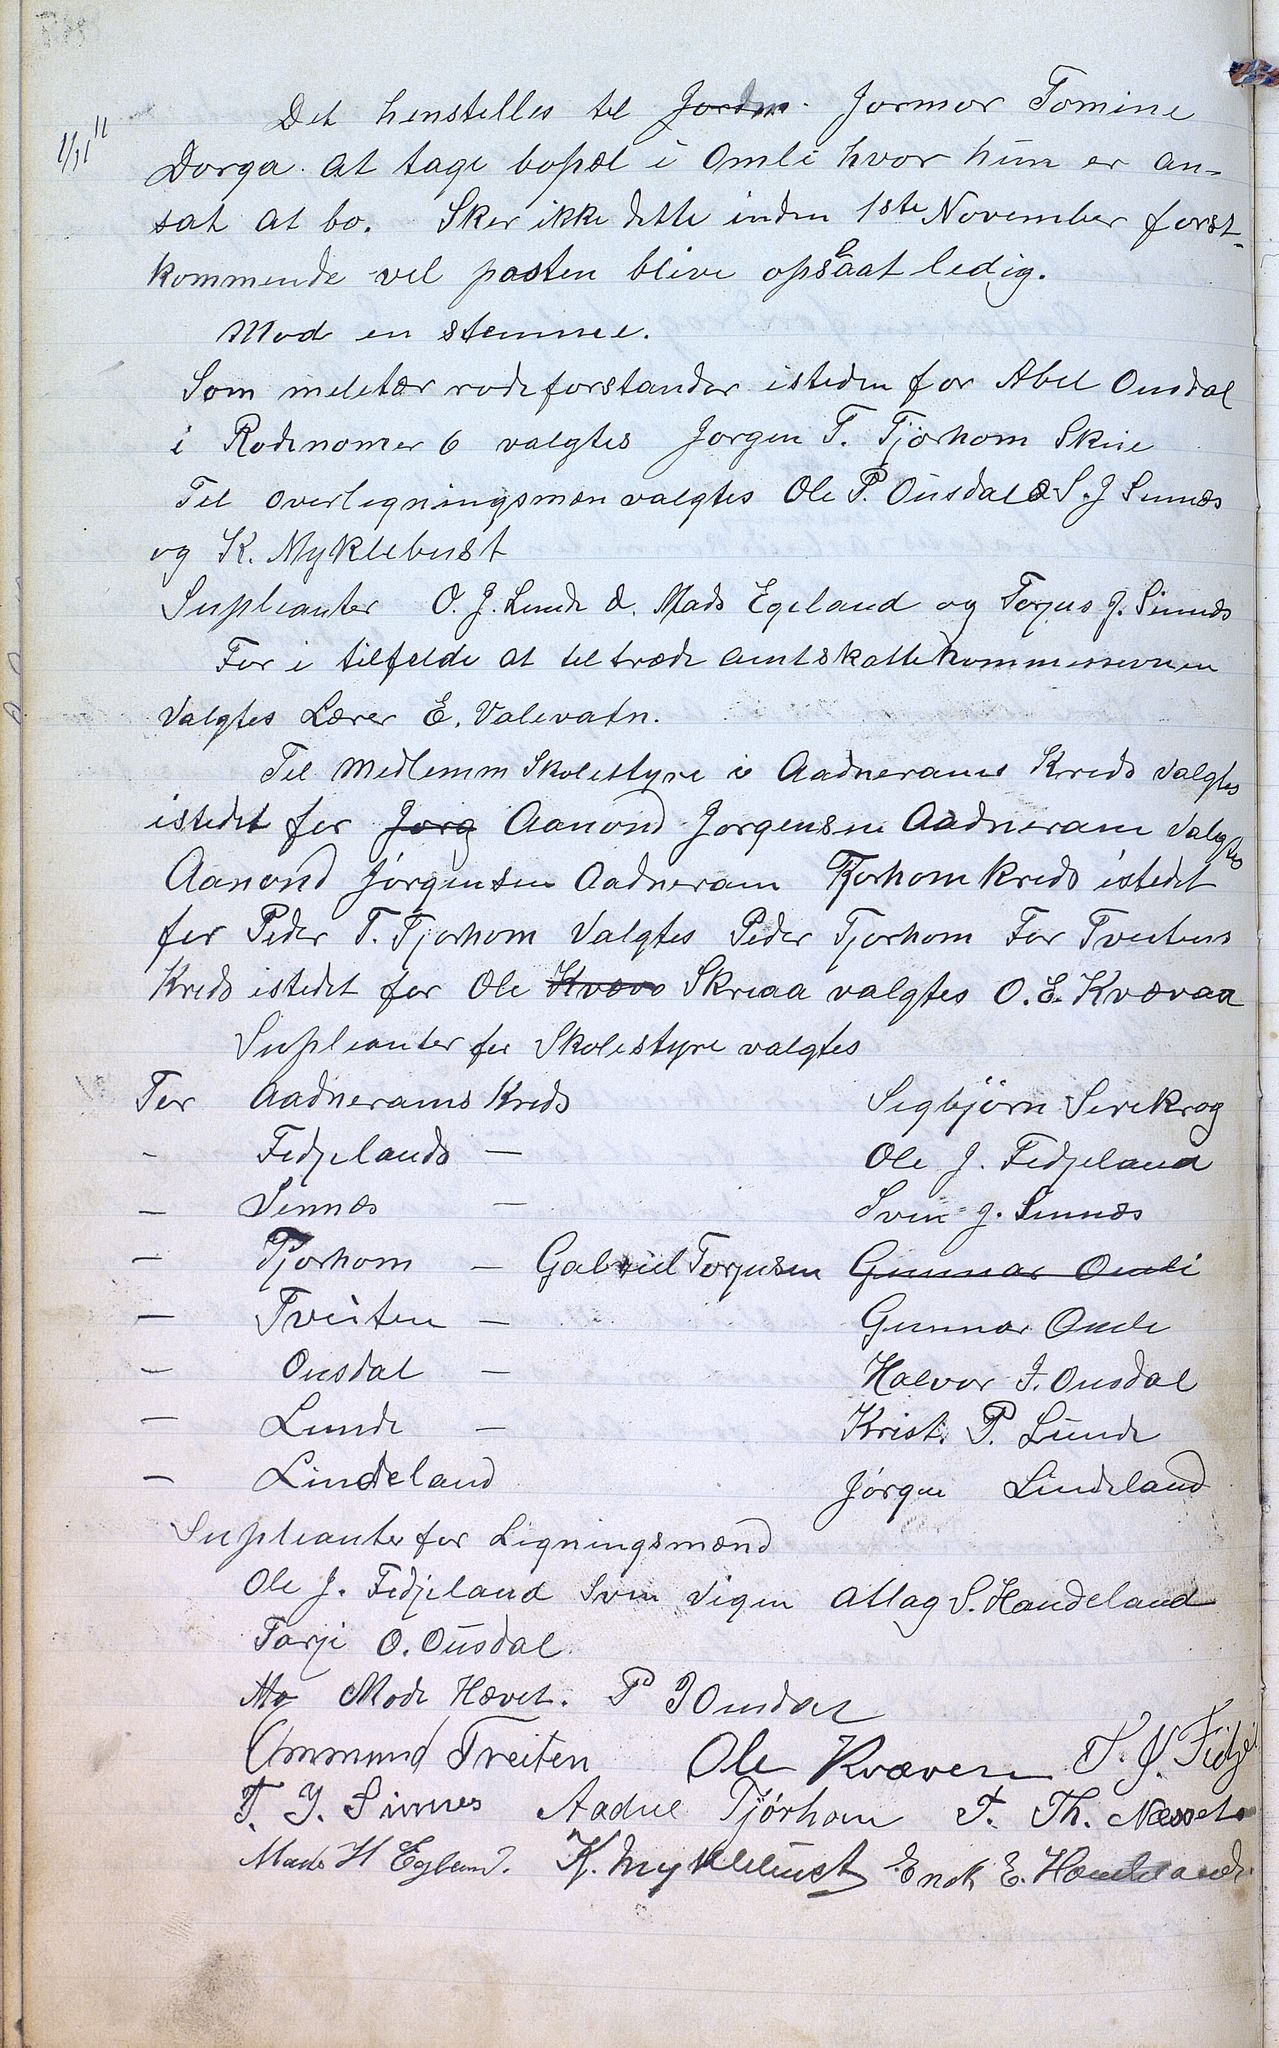 Det henstilles til Jordm. Jormor Tomine
1/11 11
Dorga. at tage bopæl i Omli hvor hun er an-
sat at bo. Sker ikke dette inden 1ste November først-
kommende vel posten blive opslaat ledig.
Mod en stemme.
Som meletær rodeforstander isteden for Abel Ousdal
i Rodenomer 6 valgtes Jorgen T. Tjørhom Skrie
Til overligningsmæn valgtes Ole P. Ousdal & S. J Sinnæs
og K. Myklebust
Supleanter O. J. Lunde d. Mads Egeland og Torjus J. Sinnæs
For i tilfelde at tiltræde amtskattekommessionen
Valgtes Lærer E. Valevatn.
Til Medlemm Skolestyre i Aadnerams Kreds valgtes
istedet for Jorg Aanond Jorgensen Aadneram valgtes
Aanond Jørgensen Aadneram Tjorhom kreds istedet
for Peder T. Tjorhom Valgtes Peder Tjorhom For Tveitens
Kreds istedet for Ole Kvævo Skreaa valgtes O. E. Kvævaa
Supleanter for Skolestyre valgtes
For Aadnerams Kreds Sigbjørn Sirekrog
- Fidjelands — Ole J. Fidjeland
- Sinnæs — Sven J. Sinnæs
- Tjorhom — Gabriel Torjusen Gunnar Omli
- Tveiten — Gunnar Omli
- Ousdal — Halvor J. Ousdal
- Lunde — Krist. P. Lunde
- Lindeland Jørgen Lindeland
Supleanter for Ligningsmænd
Ole J. Fidjeland Sven Vigen Atlag S. Haudeland
Tarje O. Ousdal
Mode Hævet. P J Ousdal
Ommund Tveiten Ole Kvæven T. J. Fidj
T. J. Sinnes Aadne Tjørhom T. Th. Næsset
Mads H Egeland. K. Myklebust E. Haudeland